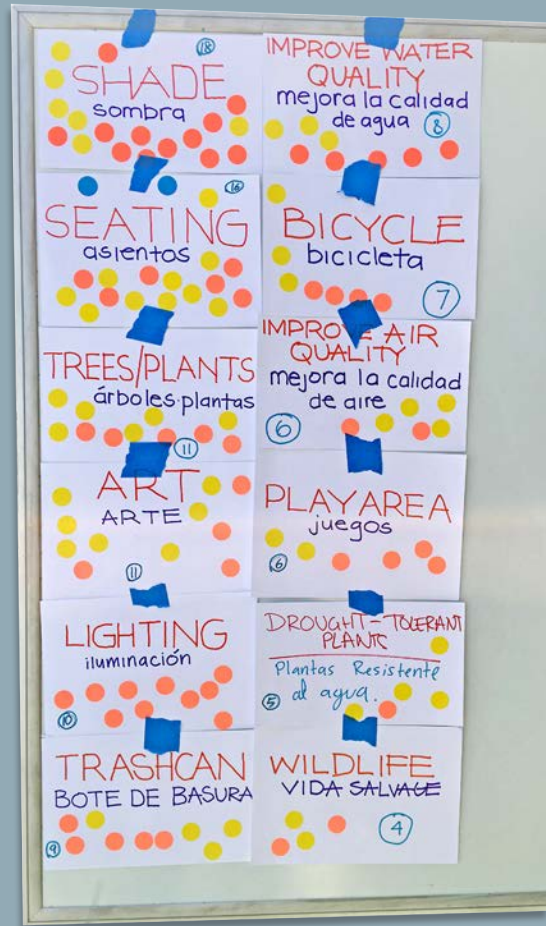 SHADE
sombra
18
SEATING
asientos
16
TREES/PLANTS
árboles·plantas
11
ART
ARTE
11
LIGHTING
iluminación
10
TRASHCAN
BOTE DE BASURA
9
IMPROVE WATER
QUALITY
mejora la calidad
de agua
8
BICYCLE
bicicleta
7
IMPROVE AIR
QUALITY
mejora la calidad
de aire
6
PLAY AREA
juegos
6
DROUGHT-TOLERANT
PLANTS
Plantas Resistente
al agua.
5
WILDLIFE
VIDA SALVAGE
4